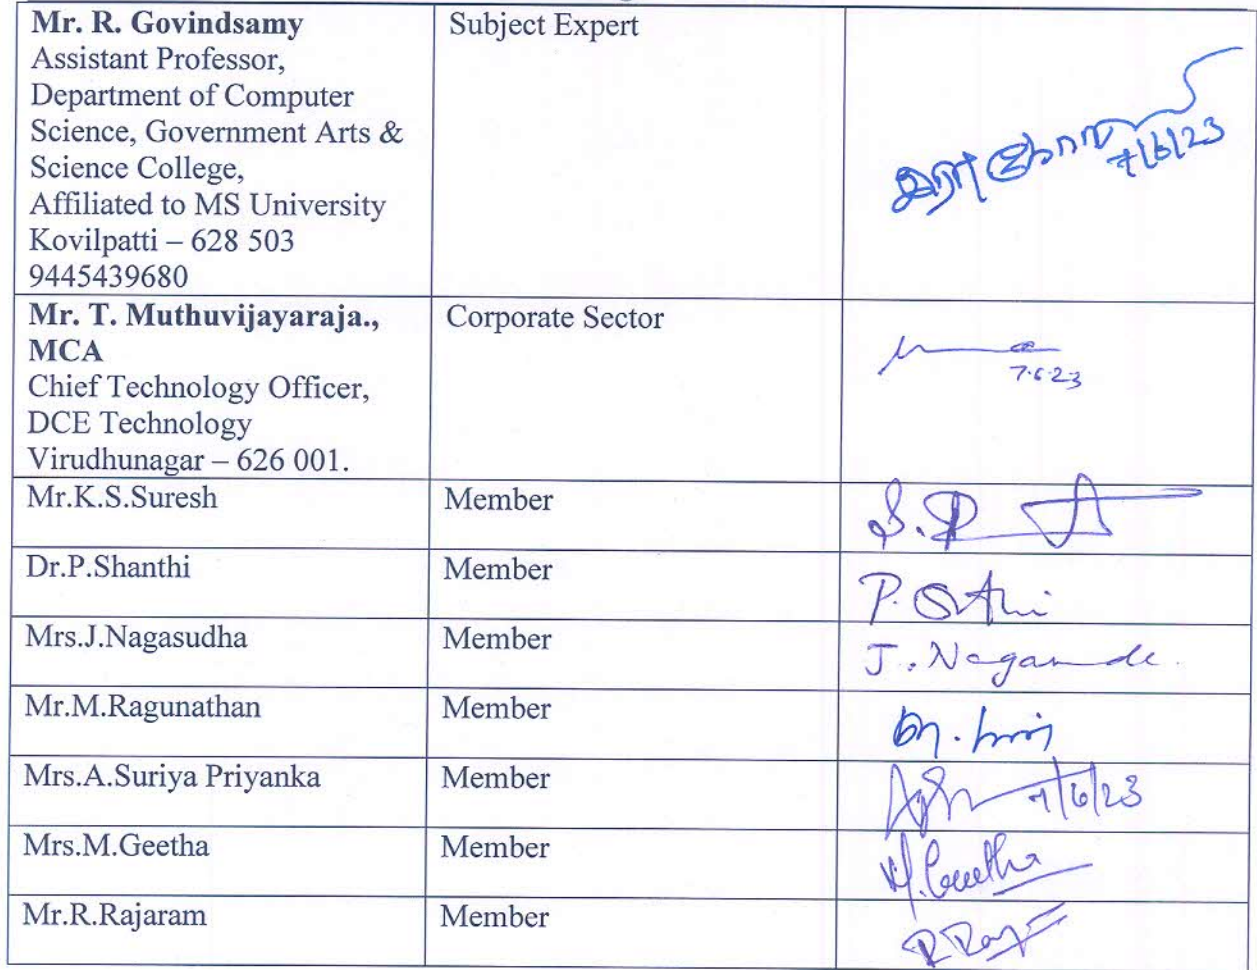 Mr. R. Govindsamy
Assistant Professor,
Department of Computer
Science, Government Arts &
Science College,
Affiliated to MS University
Kovilpatti – 628 503
9445439680
Subject Expert
7/6/23
Mr. T. Muthuvijayaraja.,
MCA
Chief Technology Officer,
DCE Technology
Virudhunagar – 626 001.
Corporate Sector
7.6.23
Mr.K.S.Suresh
Member
Dr.P.Shanthi
Member
Mrs.J.Nagasudha
Member
Mr.M.Ragunathan
Member
Mrs.A.Suriya Priyanka
Member
7/6/23
Mrs.M.Geetha
Member
M.Geetha
Mr.R.Rajaram
Member